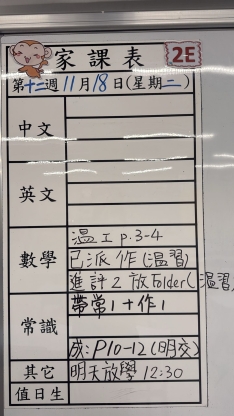 家課表 2E
第十二週 11月18日(星期二)
中文
英文
數學
溫工 p.3-4
已派作(溫習)
進評2 放Folder(溫習)
常識
帶常1+作1
成:P10-12(明交)
其它
明天放學 12:30
值日生